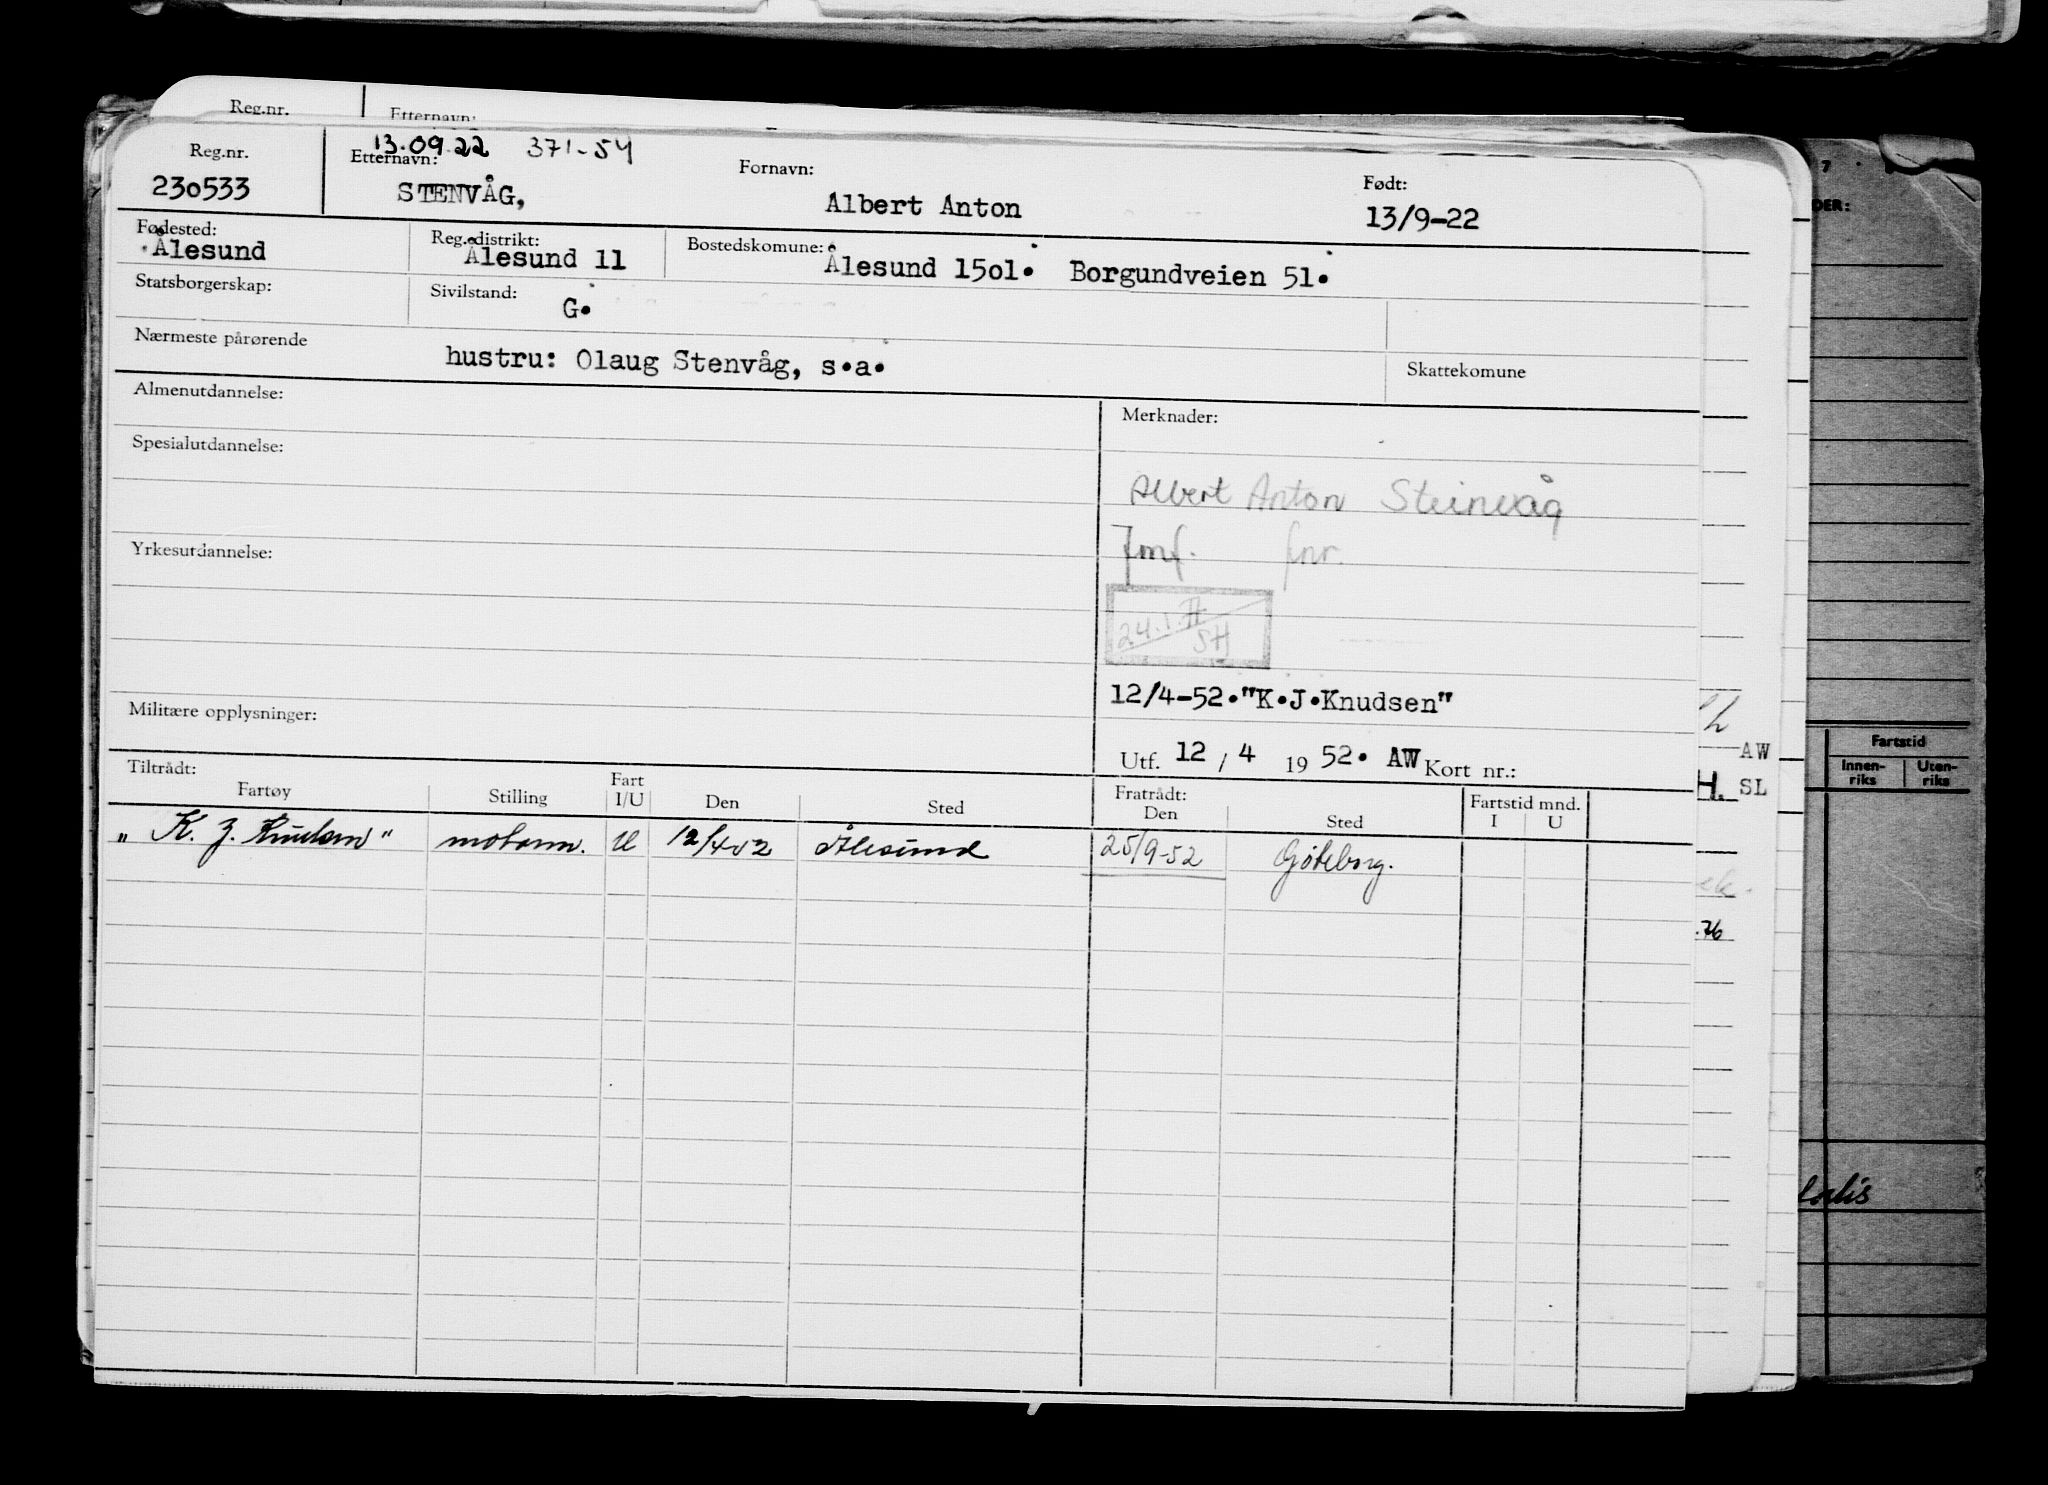 Reg.nr. Etternavn:
13.09.22 371-54
Reg.nr. Etternavn: Fornavn: Født:
230533 STENVÅG, Albert Anton 13/9-22
Fødested: Reg.distrikt: Bostedskomune:
Ålesund Ålesund 11 Ålesund 1501. Borgundveien 51.
Statsborgerskap: Sivilstand: G.
Nærmeste pårørende hustru: Olaug Stenvåg, s.a. Skattekomune
Almenutdannelse: Merknader:
Spesialutdannelse:
Albert Anton Steinvåg
Yrkesutdannelse: fnr.
24.1. SH
12/4-52."K.J.Knudsen"
Militære opplysninger:
Utf. 12 / 4 19 52. AW Kort nr.:
Tiltrådt: Fratrådt: Fartstid mnd.
Fartøy Stilling Fart I/U Den Sted Den Sted I U
"K. J. Knudsen" motorm. U 12/4 52 Ålesund 25/9-52 Göteborg.
7
DER:
AW
H. SL
Fartstid
Innen-riks Uten-riks
.76